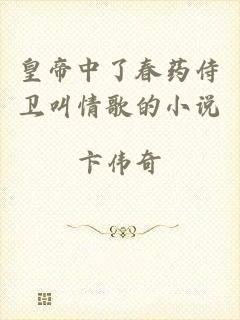 皇帝中了春药侍
卫叫情歌的小说
卞伟奇